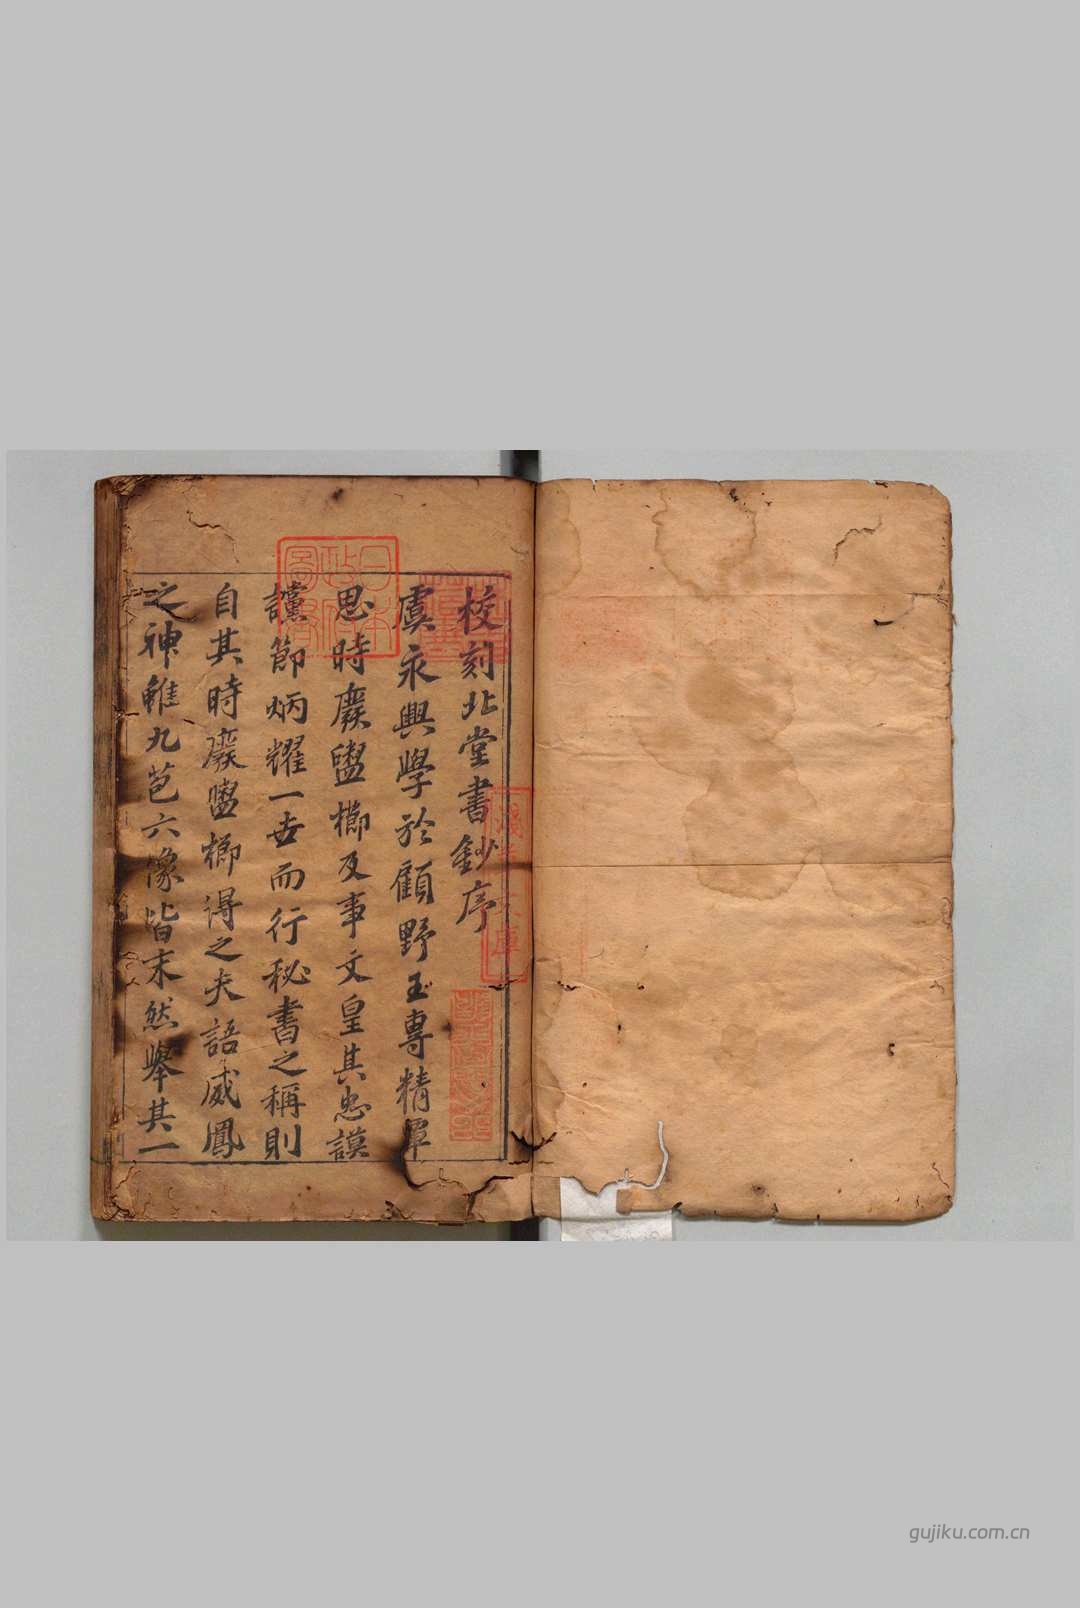 校刻北堂書鈔序
虞永興學於顧野王專精覃
思時廢盥櫛及事文皇其忠謨
讜節炳耀一世而行秘書之稱則
自其時廢盥櫛得之夫語威鳳
之神雖九苞六像皆未然舉其一
日本
政府
圖書
gujiku.com.cn